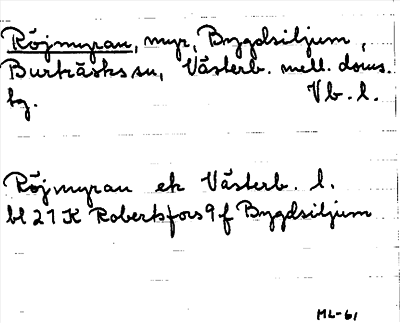 Röjmyran, myr, Bygdsiljum,
Burträsks sn, Västerb. mell. doms.
hg. Vb. l.
Röjmyran ek Västerb. l.
bl 21 K Robertsfors 9 f Bygdsiljum
ML-61